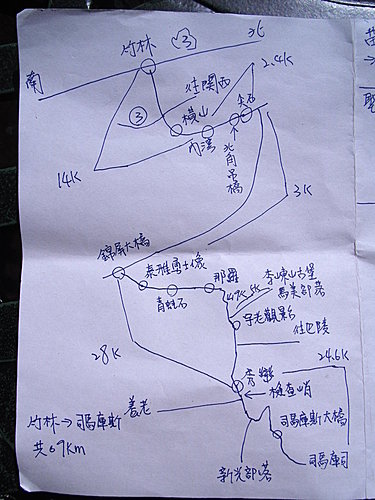 竹林 ③ 北
南
往關西 24K
尖石
③ 橫山
內灣
北角吊橋
14K
3K
錦屏大橋
泰雅勇士像 那羅 李崠山古堡
馬美部落
青蛙石 4.7K 5K
宇老觀景
往巴陵
28K 24.6K
秀巒
檢查哨
養老
竹林→司馬庫斯 司馬庫斯大橋
共69Km
司馬庫司
新光部落
苗